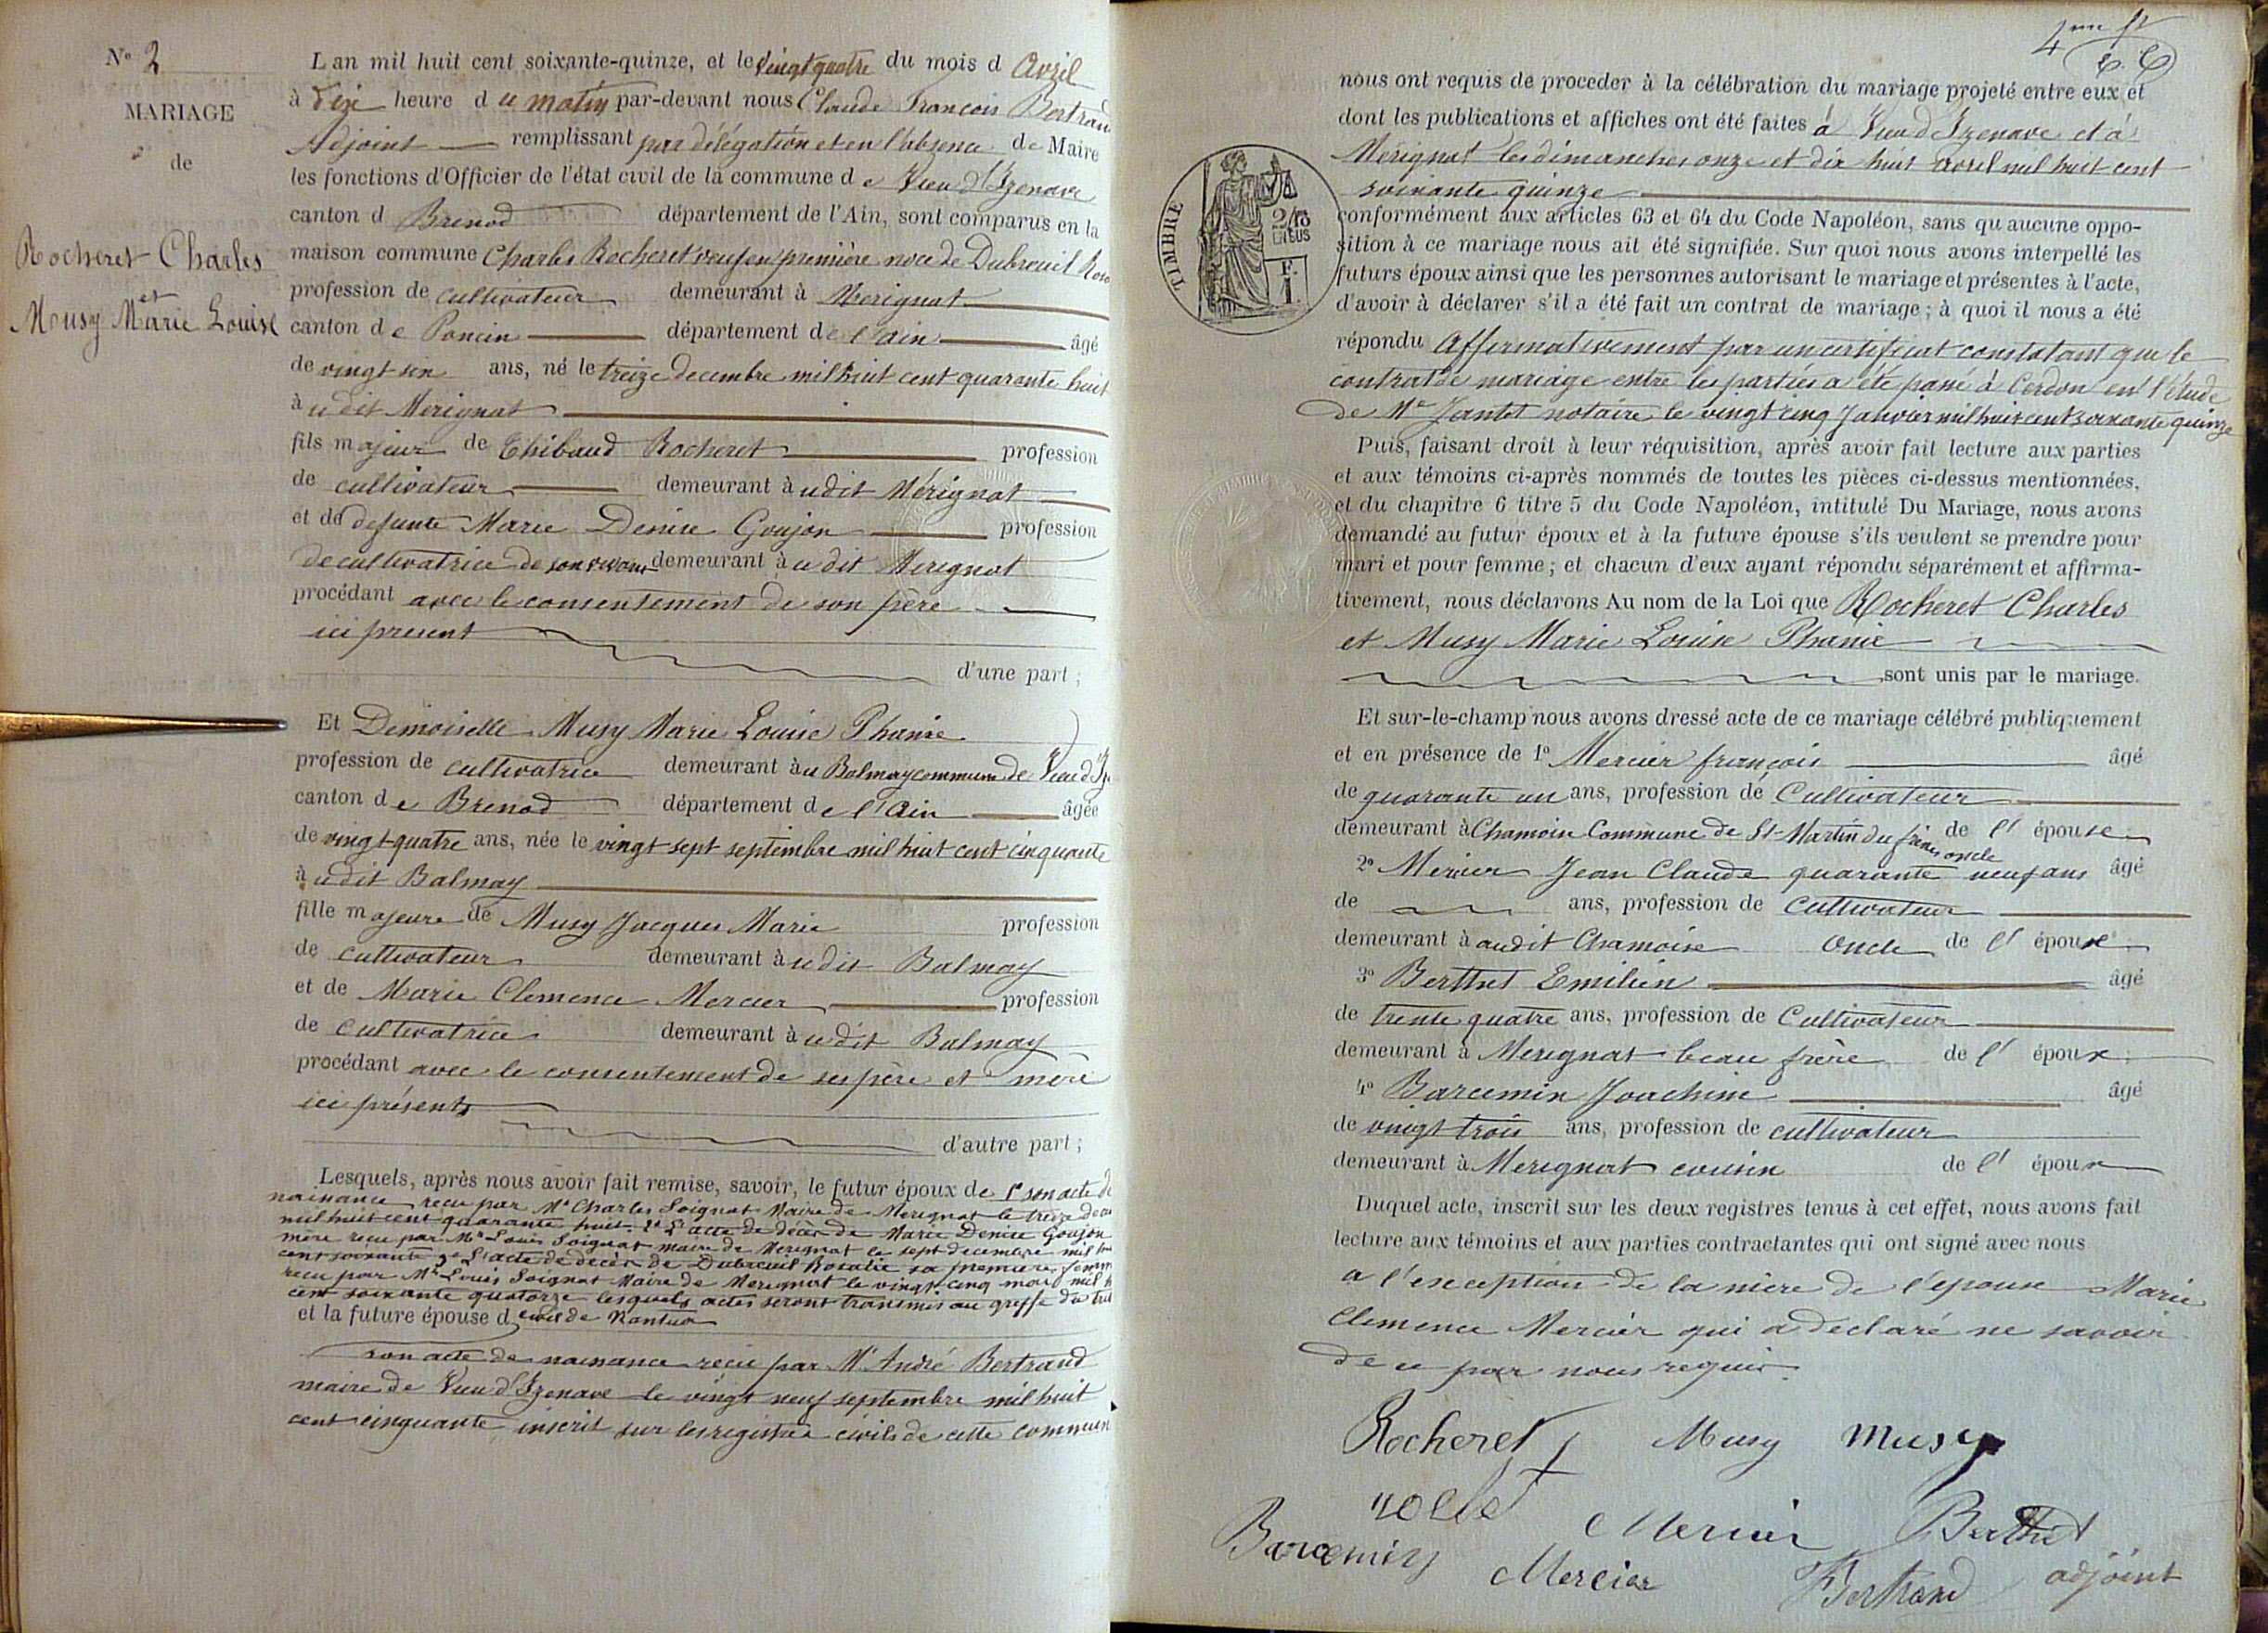 N° 2
MARIAGE
de
Rocheret Charles
et
Mousy Marie Louise
L an mil huit cent soixante-quinze, et le vingt quatre du mois d Avril
à dix heure d u matin par-devant nous Claude François Bertrand
Adjoint remplissant par délégation et en l'absence de Maire
les fonctions d'Officier de l'état civil de la commune d e Vieu d'Izenave
canton d Brenod département de l'Ain, sont comparus en la
maison commune Charles Rocheret veuf en première noce de Dubreuil Rosa
profession de cultivateur demeurant à Merignat
canton d e Poncin département de l'ain âgé
de vingt six ans, né le treize decembre mil huit cent quarante huit
à u dit Merignat
fils majeur de Thibaud Rocheret profession
de cultivateur demeurant à u dit Mérignat
et de defunte Marie Denise Goujon profession
de cultivatrice de son vivant demeurant à u dit Merignat
procédant avec le consentement de son père
ici present
d'une part ;
Et Demoiselle Musy Marie Louise Phanie
profession de cultivatrice demeurant à u Balmay commune de Vieu d'Iz
canton d e Brenod département d e l'Ain âgée
de vingt-quatre ans, née le vingt sept septembre mil huit cent cinquante
à u dit Balmay
fille majeure de Musy Jacques Marie profession
de cultivateur demeurant à u dit Balmay
et de Marie Clemence Mercier profession
de cultivatrice demeurant à u dit Balmay
procédant avec le consentement de ses père et mère
ici présents
d'autre part ;
Lesquels, après nous avoir fait remise, savoir, le futur époux de 1° son acte de
naissance recu par Mr Charles Soignat Maire de Merignat le treize dece
mil huit cent quarante huit 2° L'acte de décès de Marie Denise Goujon
mère recu par Mr Louis Soignat maire de Merignat le sept decembre mil hu
cent soixante 3° L'acte de décès de Dubreuil Rosalie sa premiere femm
recu par Mr Louis Soignat Maire de Merignat le vingt-cinq mai mil h
cent soixante quatorze lesquels actes seront transmis au greffe du trib
et la future épouse d civil de Nantua
son acte de naissance recu par Mr André Bertrand
maire de Vieu d'Izenave le vingt neuf septembre mil huit
cent cinquante inscrit sur les registres civils de cette commun
4me ft
nous ont requis de proceder à la célébration du mariage projeté entre eux et
dont les publications et affiches ont été faites à Vieu d'Izenave et à
Mérignat les dimanches onze et dix huit avril mil huit cent
soixante quinze
TIMBRE
2/10
EN SUS
F.
1.
conformément aux articles 63 et 64 du Code Napoléon, sans qu aucune oppo-
sition à ce mariage nous ait été signifiée. Sur quoi nous avons interpellé les
futurs époux ainsi que les personnes autorisant le mariage et présentes à l'acte,
d'avoir à déclarer s'il a été fait un contrat de mariage ; à quoi il nous a été
répondu Affirmativement par un certificat constatant que le
contrat de mariage entre les parties a été passé à Cerdon en l'étude
de Me Jantet notaire le vingt cinq Janvier mil huit cent soixante quinze
Puis, faisant droit à leur réquisition, après avoir fait lecture aux parties
et aux témoins ci-après nommés de toutes les pièces ci-dessus mentionnées,
et du chapitre 6 titre 5 du Code Napoléon, intitulé Du Mariage, nous avons
demandé au futur époux et à la future épouse s'ils veulent se prendre pour
mari et pour femme ; et chacun d'eux ayant répondu séparément et affirma-
tivement, nous déclarons Au nom de la Loi que Rocheret Charles
et Musy Marie Louise Phanie
sont unis par le mariage.
Et sur-le-champ nous avons dressé acte de ce mariage célébré publiquement
et en présence de 1° Mercier françois âgé
de quarante un ans, profession de Cultivateur
demeurant à Chamoise Commune de St-Martin du frêne oncle de l' épouse
2° Mercier Jean Claude quarante neuf ans âgé
de ans, profession de Cultivateur
demeurant à audit Chamoise Oncle de l' épouse
3° Berthet Emilien âgé
de trente quatre ans, profession de Cultivateur
demeurant à Merignat beau frère de l' époux
4° Barcemin Joachim âgé
de vingt trois ans, profession de cultivateur
demeurant à Merignat cousin de l' époux
Duquel acte, inscrit sur les deux registres tenus à cet effet, nous avons fait
lecture aux témoins et aux parties contractantes qui ont signé avec nous
a l'exception de la mère de l'epouse Marie
Clemence Mercier qui a declaré ne savoir
de ce par nous requis.
Rocheret Musy Musy
Mercier Berthet
Barcemin Mercier Bertrand adjoint